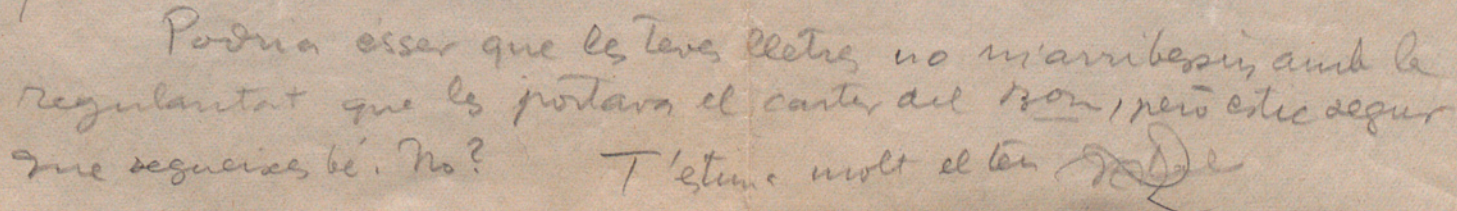 Podria ésser que les teves lletres no m'arribessin amb la
regularitat que les portava el carter del Bon, però estic segur
que segueixes bé. No? T'estima molt el teu